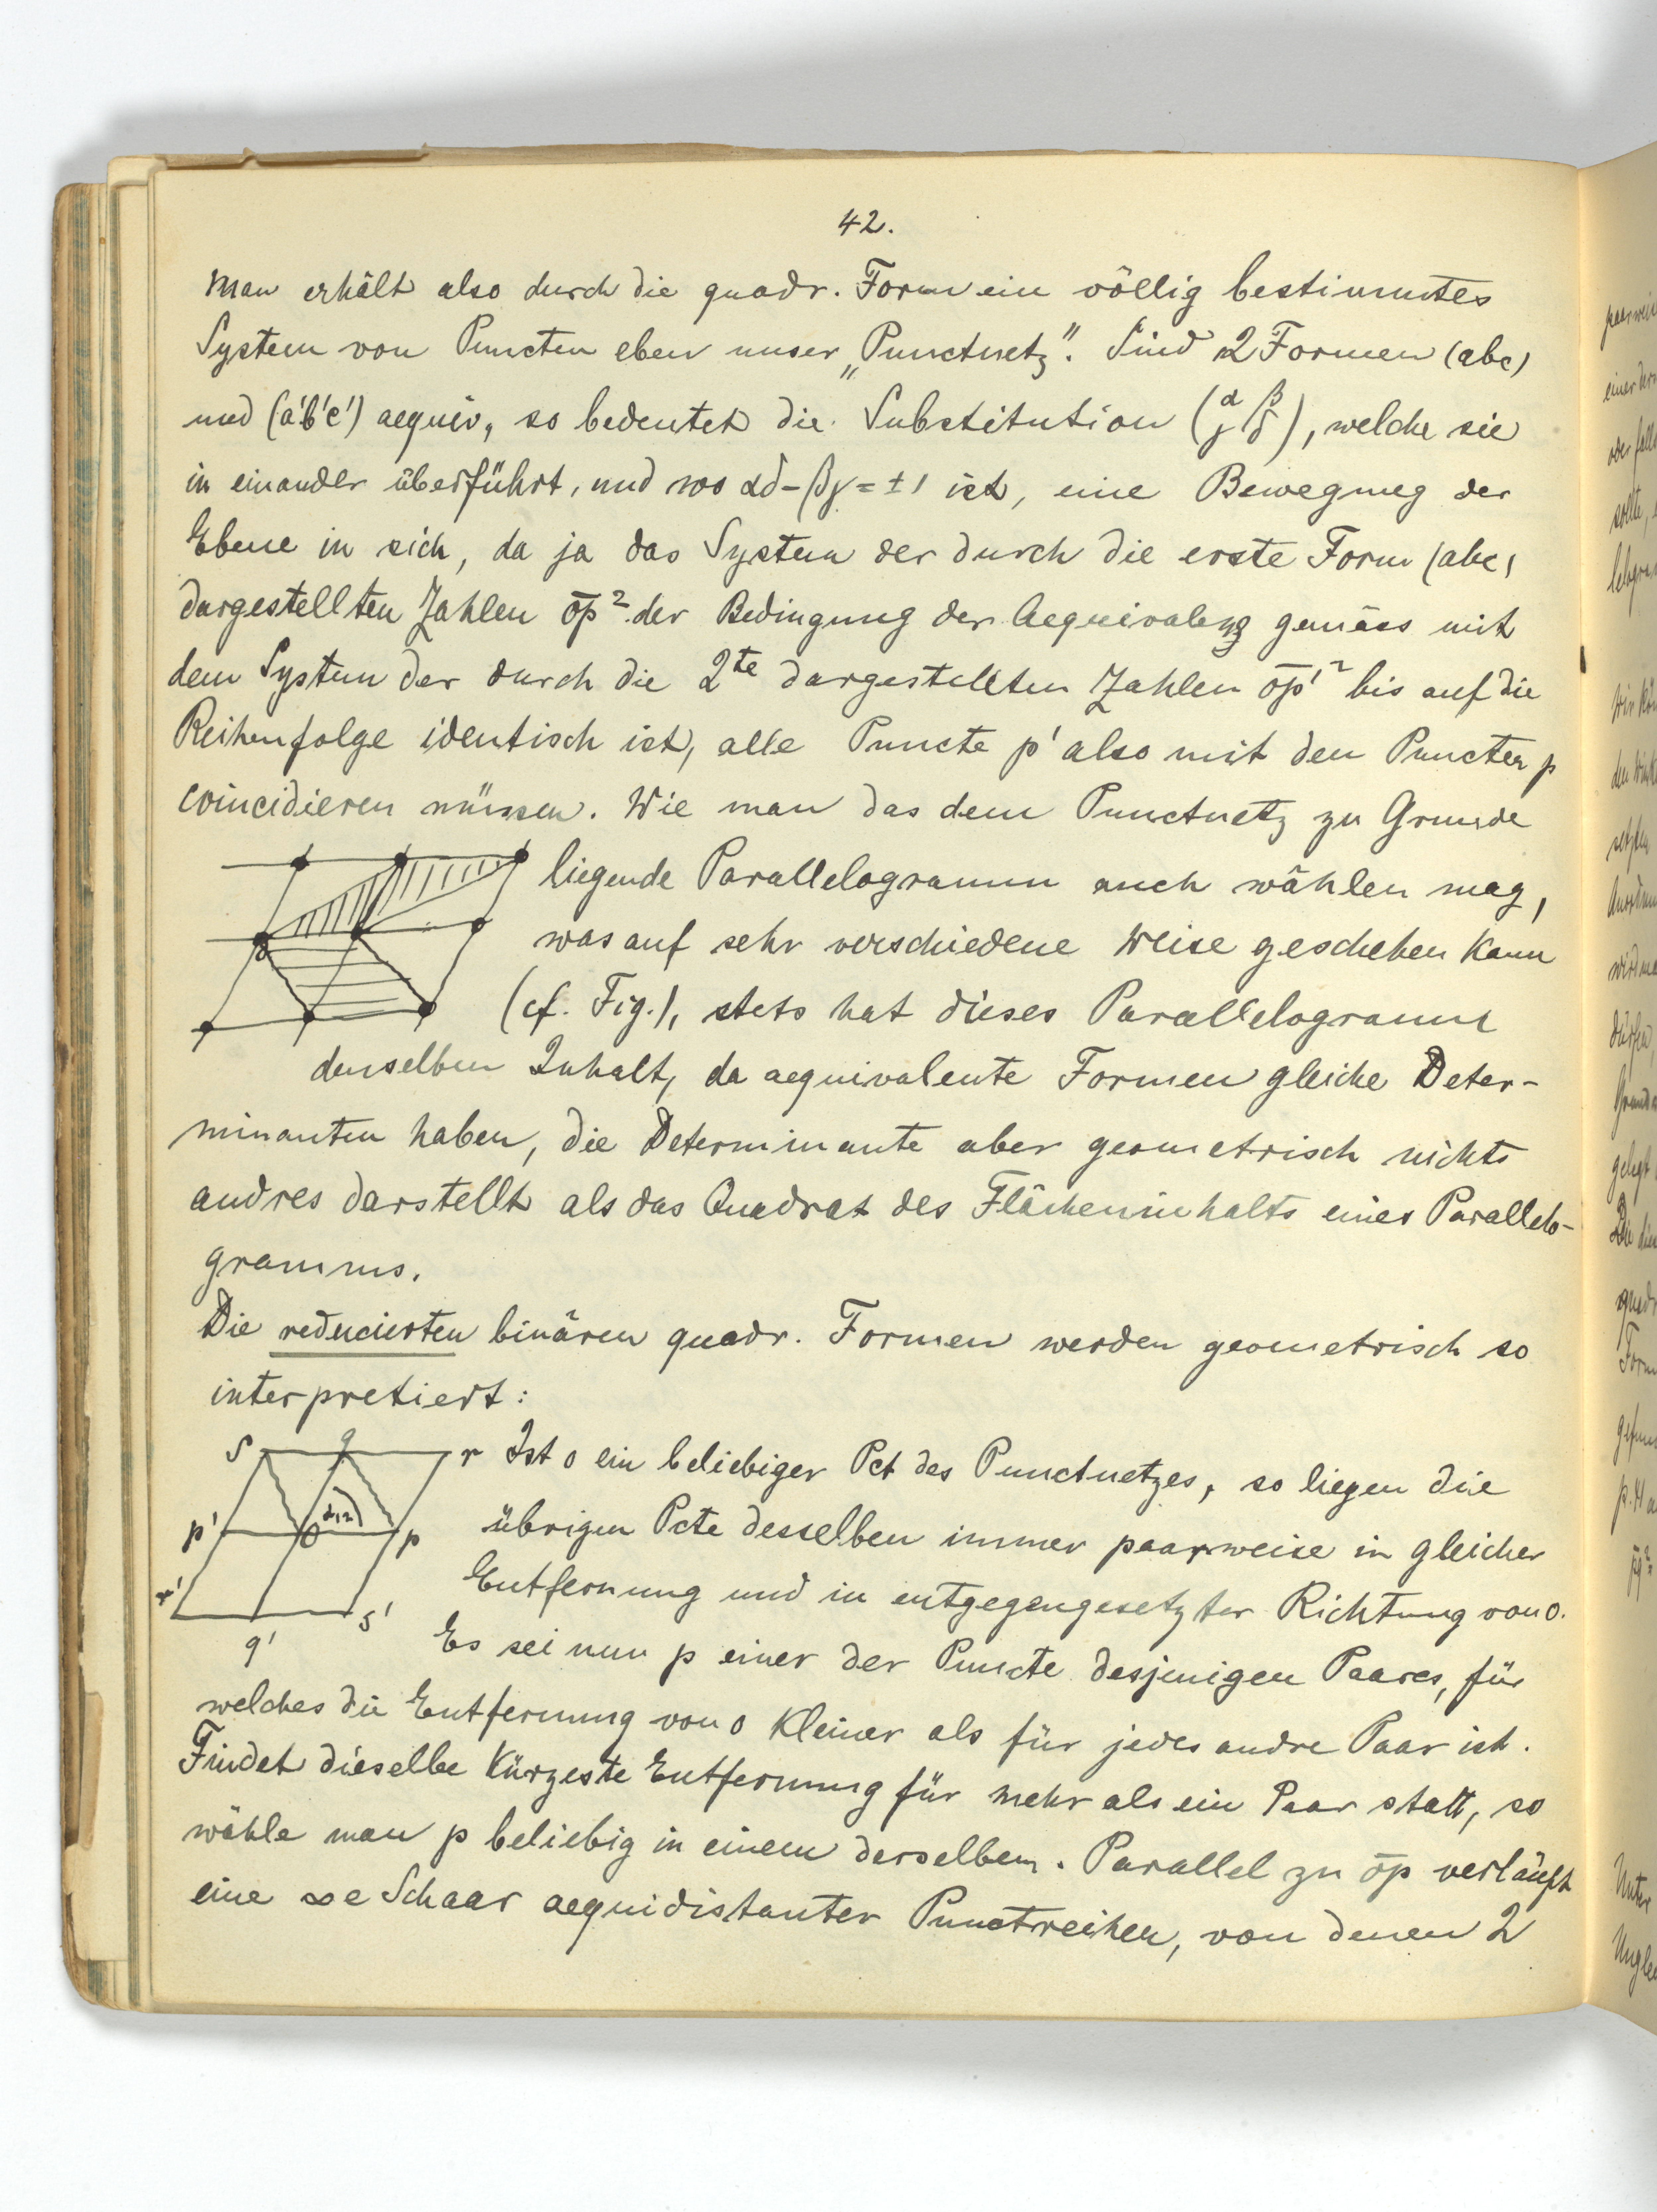 42.
Man erhält also durch die quadr. Form ein völlig bestimmtes
System von Puncten eben unser „Punctnetz“. Sind 2 Formen (abc)
und (a'b'c') aequiv, so bedeutet die Substitution (α β γ δ), welche sie
in einander überführt, und wo αδ-βγ=±1 ist, eine Bewegung der
Ebene in sich, da ja das System der durch die erste Form (abc)
dargestellten Zahlen o̅p̅² der Bedingung der Aequivalenz gemäss mit
dem System der durch die 2te dargestellten Zahlen o̅p̅'² bis auf die
Reihenfolge identisch ist, alle Puncte p' also mit den Puncten p
coincidieren müssen. Wie man das dem Punctnetz zu Grunde
liegende Parallelogramm auch wählen mag,
was auf sehr verschiedene Weise geschehen kann
(cf. Fig.), stets hat dieses Parallelogramm
denselben Inhalt, da aequivalente Formen gleiche Deter-
minanten haben, die Determinante aber geometrisch nichts
andres darstellt als das Quadrat des Flächeninhalts eines Parallelo-
gramms.
Die reducierten binären quadr. Formen werden geometrisch so
interpretiert:
s q r
Ist o ein beliebiger Pct des Punctnetzes, so liegen die
p' o α₁₂ p
übrigen Pcte desselben immer paarweise in gleicher
Entfernung und in entgegengesetzter Richtung von o.
r' q' s'
Es sei nun p einer der Puncte desjenigen Paares, für
welches die Entfernung von o kleiner als für jedes andre Paar ist.
Findet dieselbe kürzeste Entfernung für mehr als ein Paar statt, so
wähle man p beliebig in einem derselben. Parallel zu o̅p̅ verläuft
eine ∞e Schaar aequidistanter Punctreihen, von denen 2